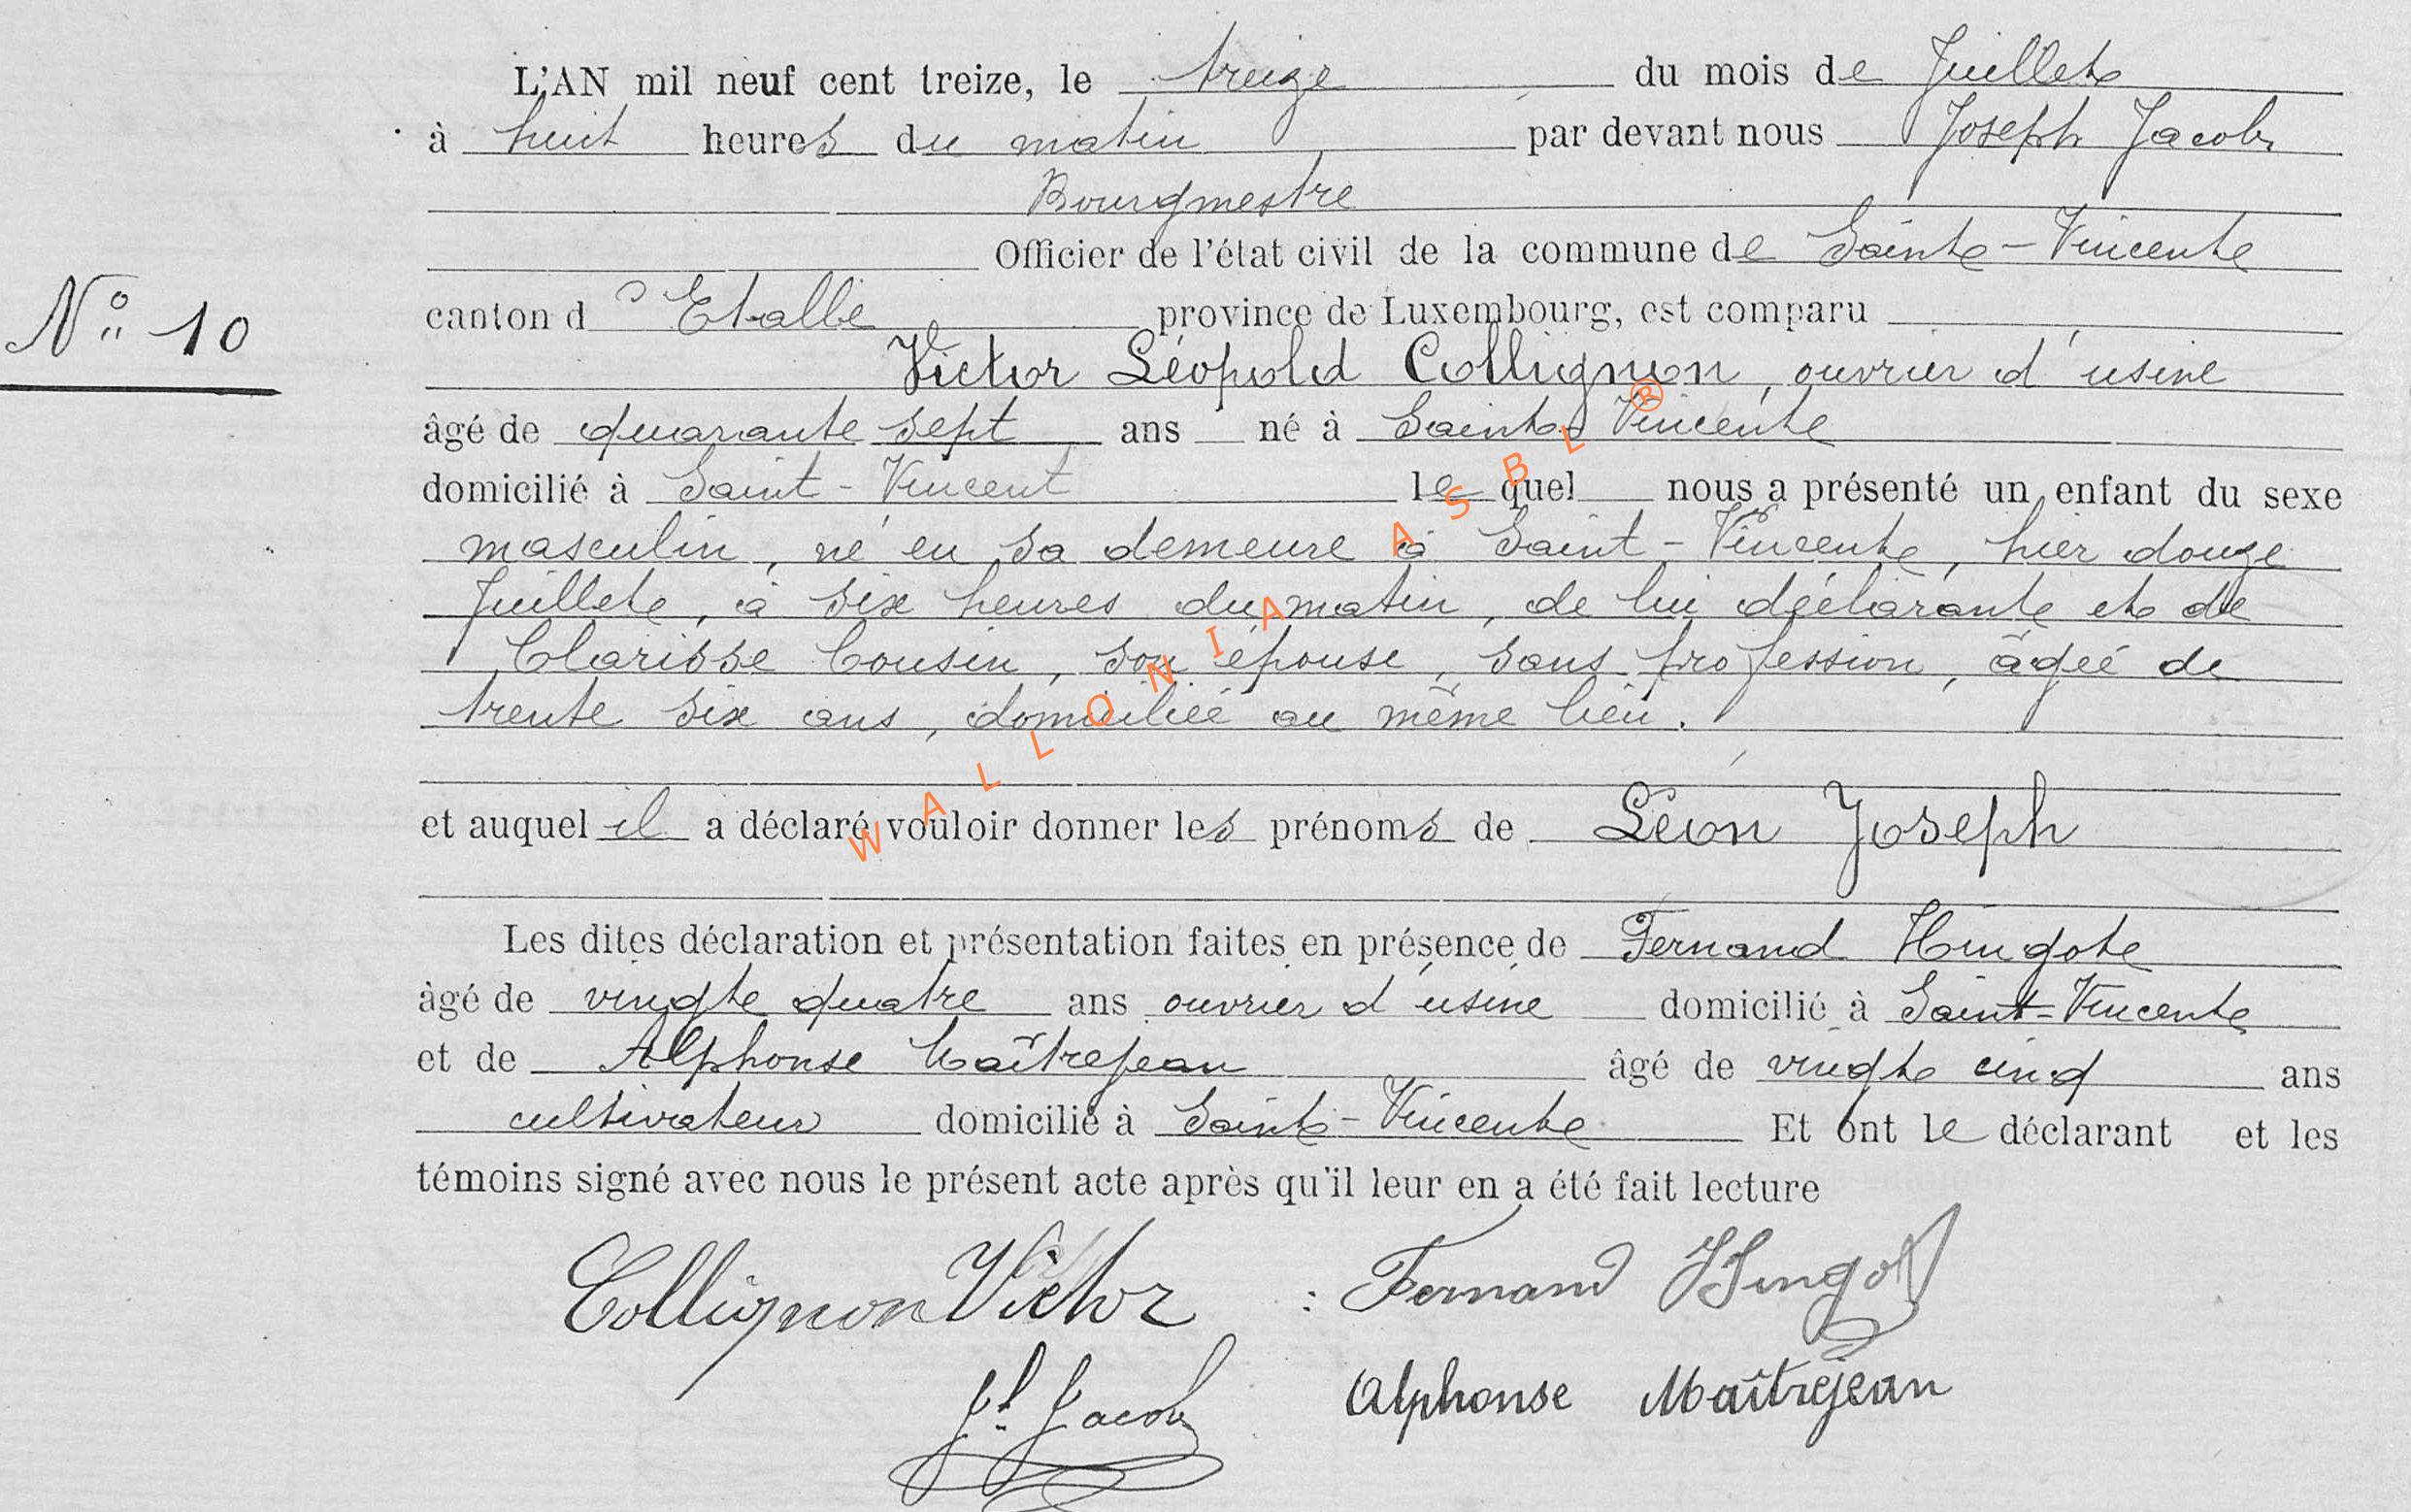 L'AN mil neuf cent treize, le treize du mois de Juillet
à huit heures du matin par devant nous Joseph Jacob
Bourgmestre
Officier de l'état civil de la commune de Saint-Vincent
N° 10
canton d'Etalle province de Luxembourg, est comparu
Victor Léopold Collignon, ouvrier d'usine
âgé de quarante sept ans né à Saint Vincent
domicilié à Saint-Vincent lequel nous a présenté un enfant du sexe
masculin, né en sa demeure à Saint-Vincent, hier douze
Juillet, à six heures du matin, de lui déclarant et de
Clarisse Cousin, son épouse, sans profession, âgée de
trente six ans, domiciliée au même lieu.
et auquel il a déclaré vouloir donner les prénoms de Léon Joseph
Les dites déclaration et présentation faites en présence de Fernand Hingot
âgé de vingt quatre ans ouvrier d'usine domicilié à Saint-Vincent
et de Alphonse Maîtrejean âgé de vingt cinq ans
cultivateur domicilié à Saint-Vincent Et ont le déclarant et les
témoins signé avec nous le présent acte après qu'il leur en a été fait lecture
Collignon Victor Fernand Hingot
Jh Jacob Alphonse Maîtrejean
WALLONIA ASBL ®